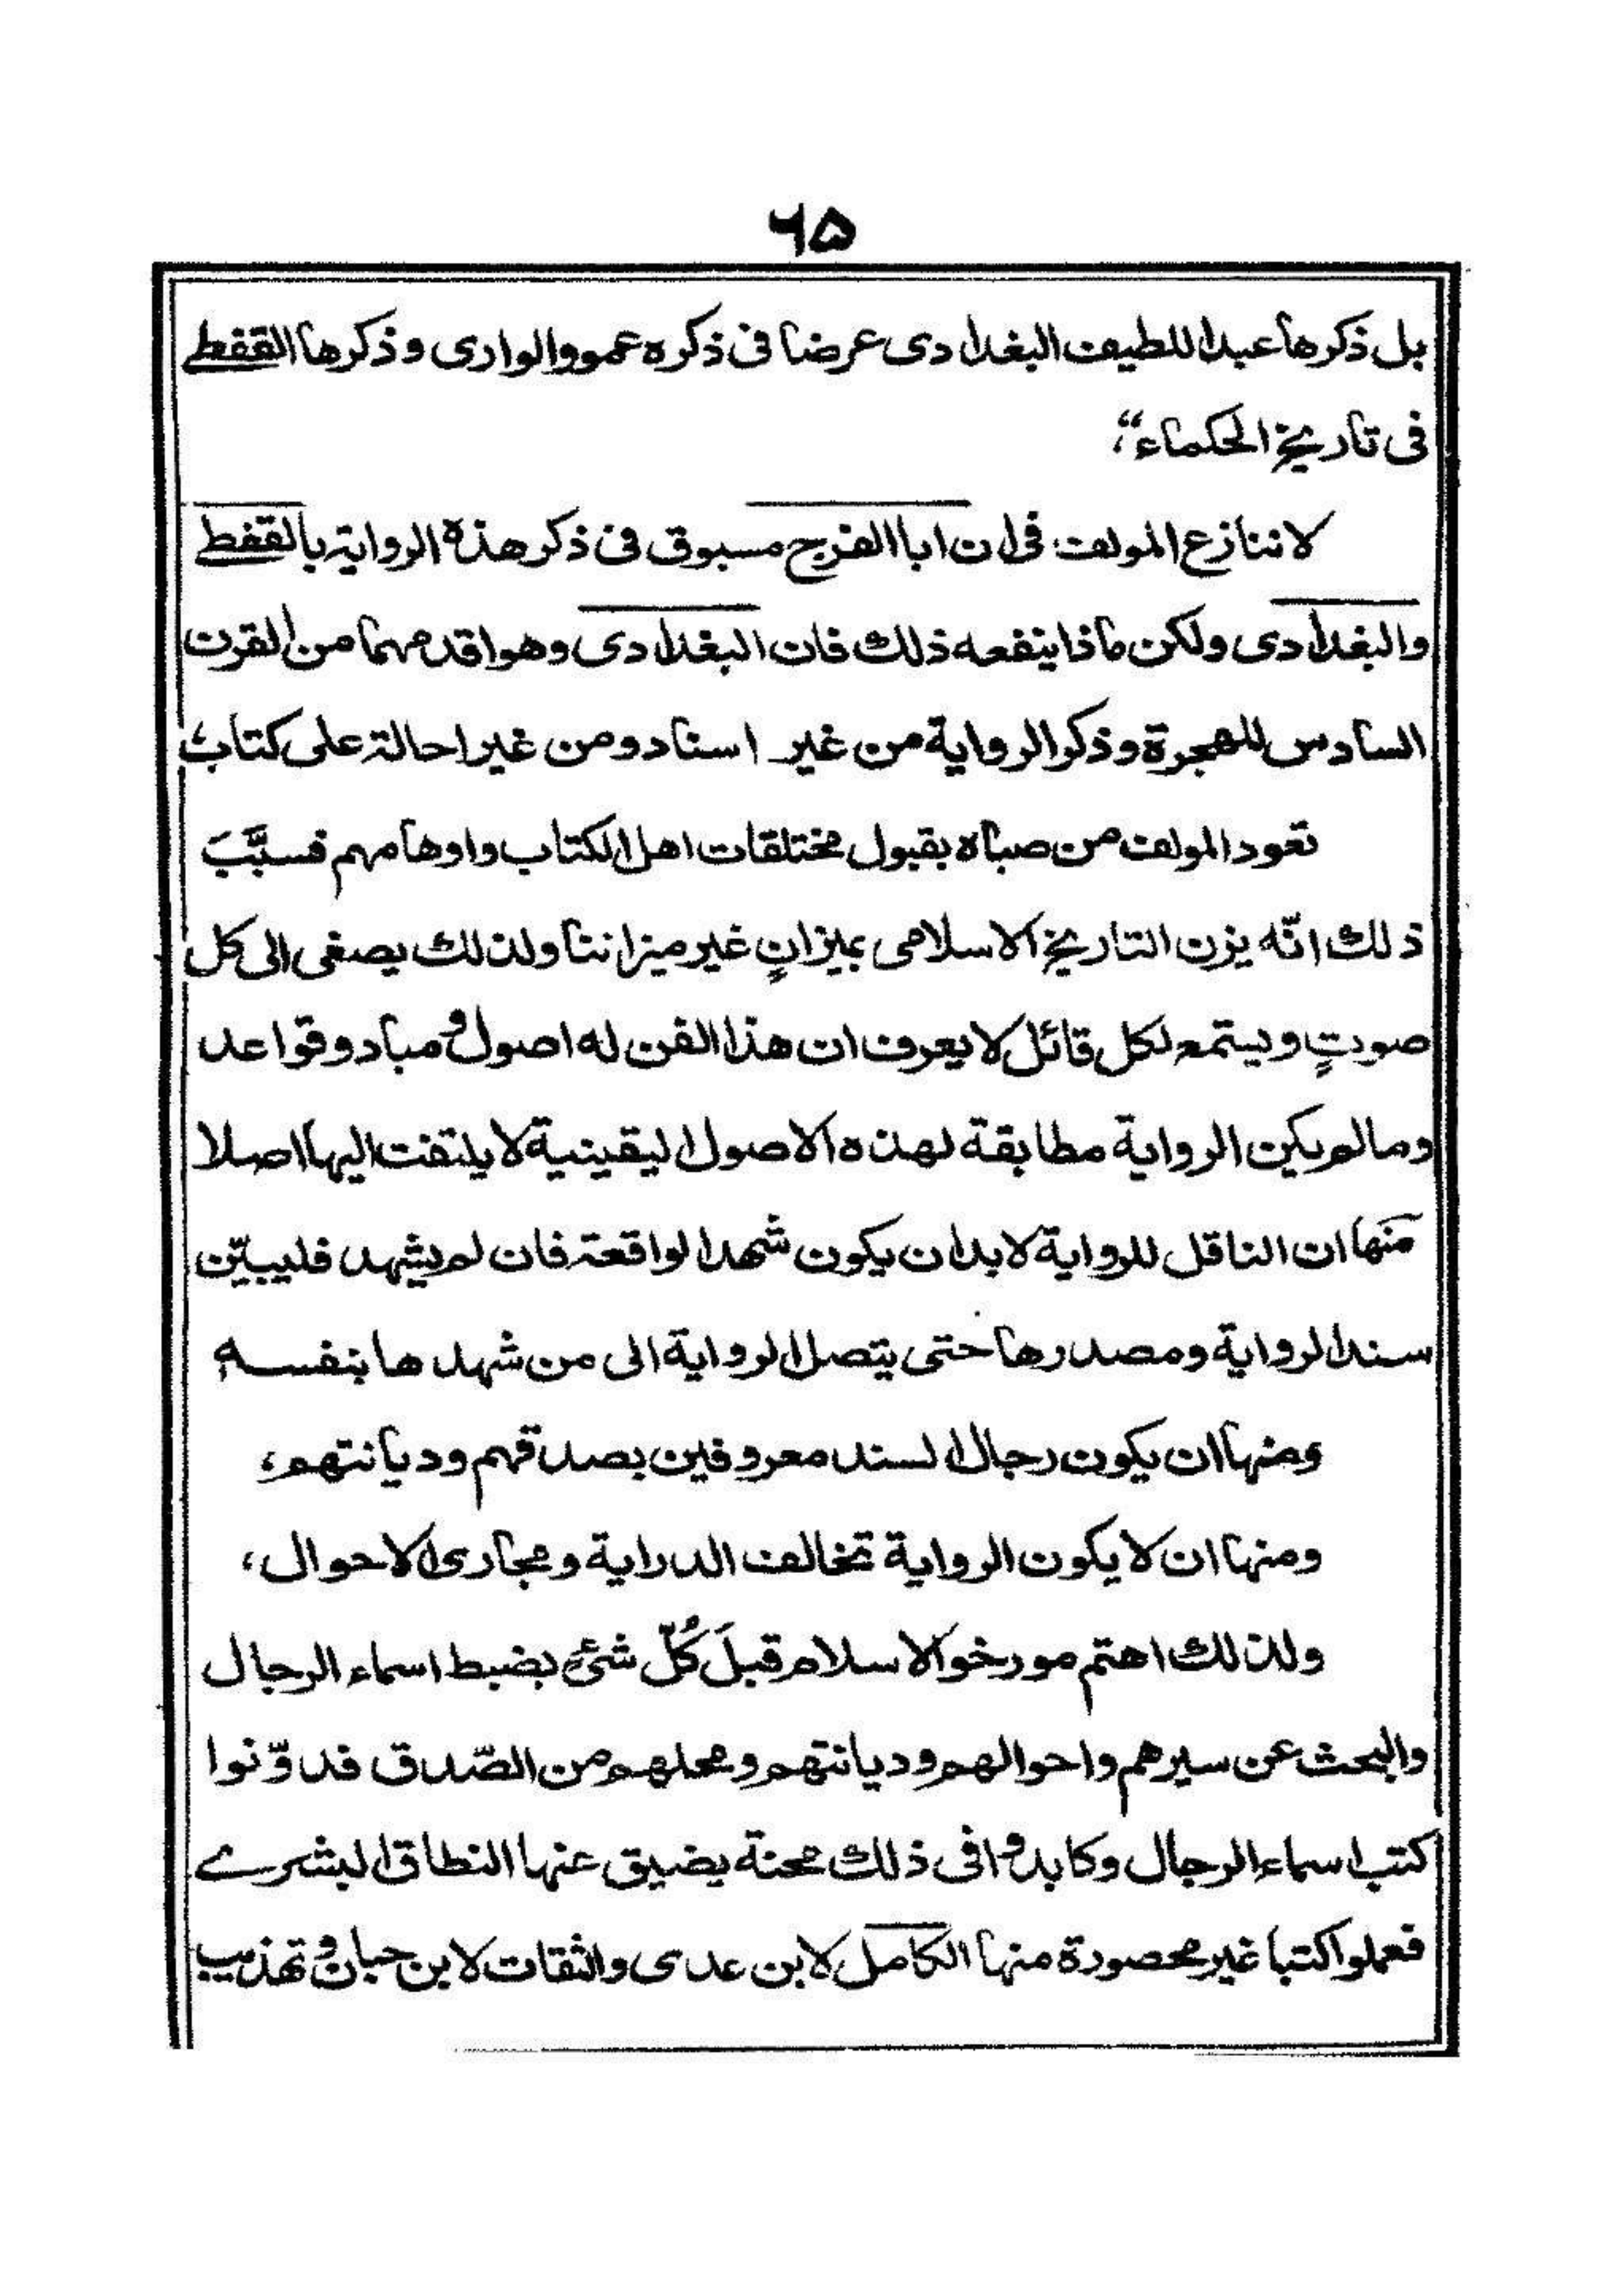 ٦٥
بل ذكرها عبد اللطيف البغدادى عرضا فى ذكره عمود الوارى وذكرها القفطى
فى تاريخ الحكماء“،
لا ننازع المولف فى ان ابا الفرج مسبوق فى ذكر هذه الرواية بالقفطى
والبغدادى ولكن ماذا ينفعه ذلك فان البغدادى وهو اقدمهما من القرن
السادس للهجرة وذكر الرواية من غير اسناد ومن غير احالة على كتاب،
تعود المولف من صباه بقبول مختلقات اهل الكتاب واوهامهم فسبَّبَ
ذلك انّه يزن التاريخ الاسلامى بميزانٍ غير ميزاننا ولذلك يصغى الى كل
صوتٍ ويستمع لكل قائل لا يعرف ان هذا الفن له اصول و مباد وقواعد
ومالم يكن الرواية مطابقة لهذه الاصول اليقينية لا يلتفت اليها اصلا
منها ان الناقل للرواية لابد ان يكون شهد الواقعة فان لم يشهد فليبيّن
سند الرواية ومصدرها حتى يتصل الرواية الى من شهدها بنفسه
ومنها ان يكون رجال السند معروفين بصدقهم وديانتهم،
ومنها ان لا يكون الرواية تخالف الدراية ومجارى الاحوال،
ولذلك اهتم مورخو الاسلام قبلَ كُلّ شئ بضبط اسماء الرجال
والبحث عن سيرهم واحوالهم وديانتهم ومحلهم من الصّدق فدوّنوا
كتب اسماء الرجال وكابدوا فى ذلك محنة يضيق عنها النطاق البشرى
فعملوا كتبا غير محصورة منها الكامل لابن عدى والثقات لابن حبان و تهذيب